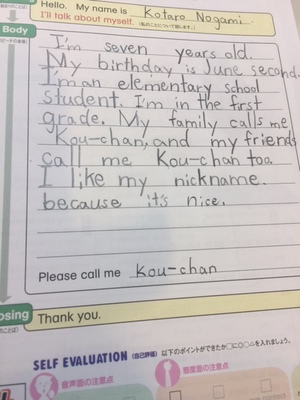 Hello. My name is Kotaro Nogami
I'll talk about myself.
Body
I'm seven years old.
My birthday is June second.
I'm an elementary school
student. I'm in the first
grade. My family calls me
Kou-chan, and my friends
call me Kou-chan too.
I like my nickname.
because it's nice.
Please call me Kou-chan
osing
Thank you.
SELF EVALUATION (自己評価) 以下のポイントができたか□に○○△を入れましょう。
音声面の注意点
態度面の注意点